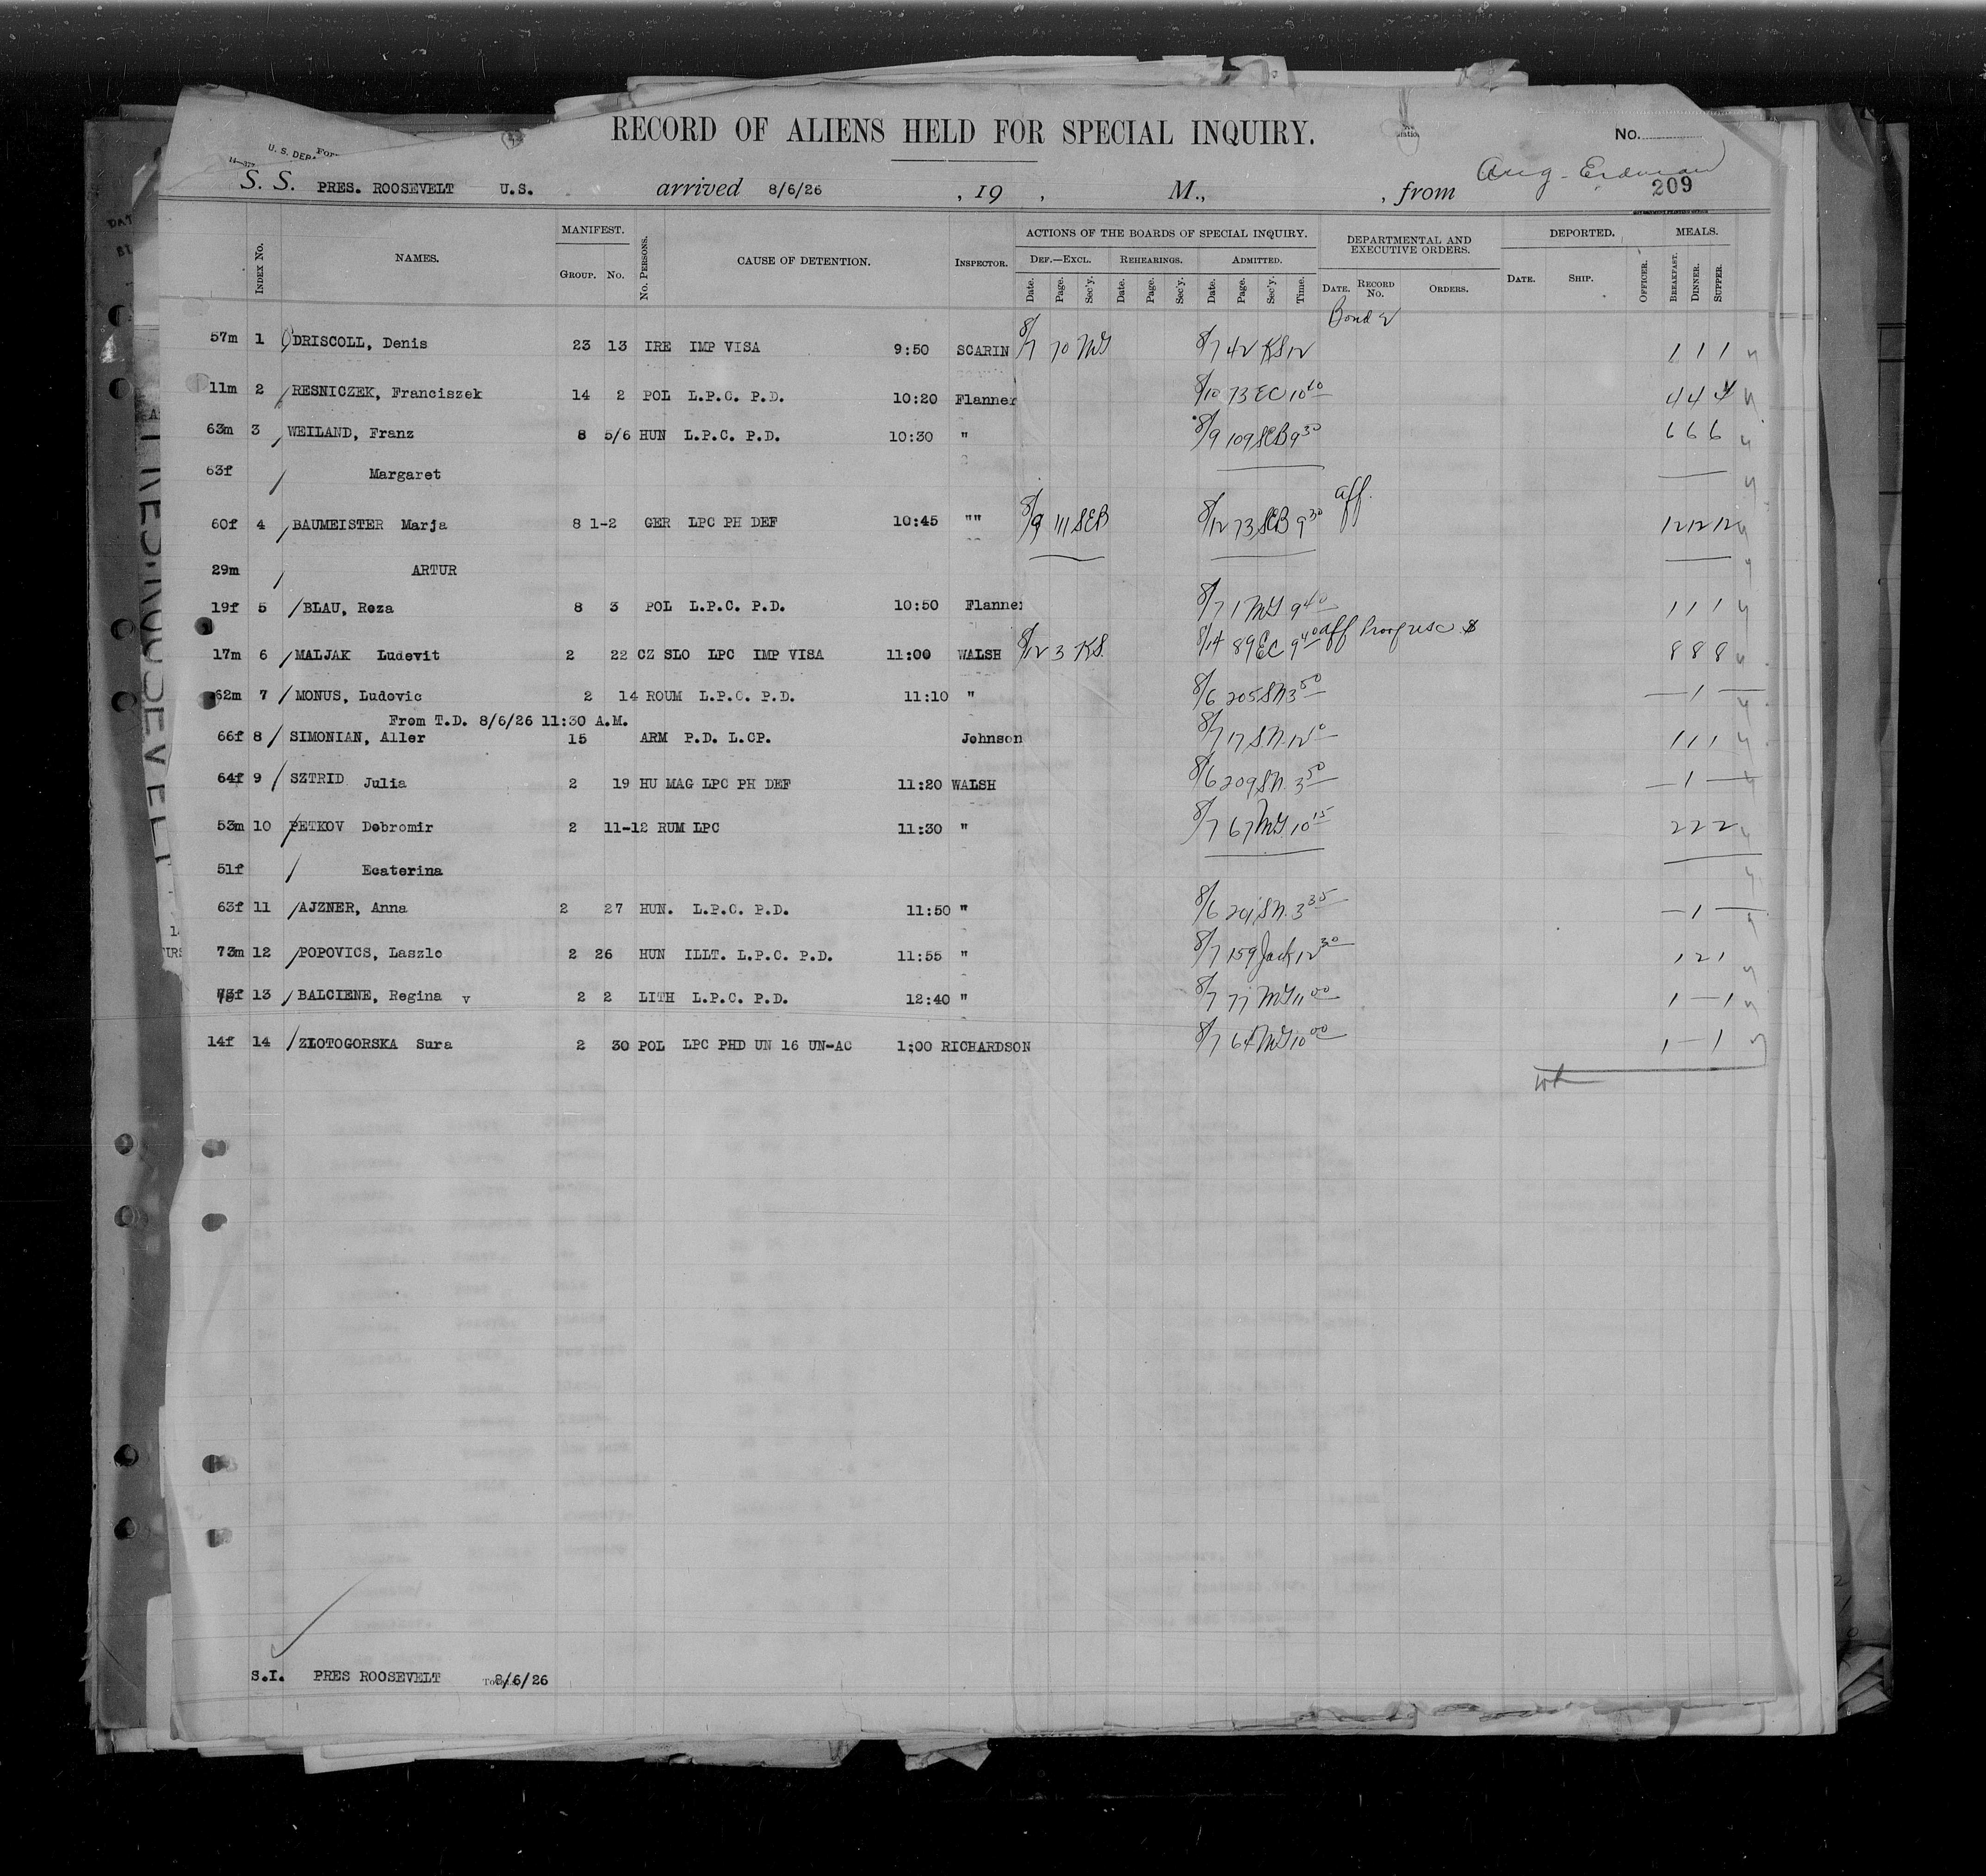 RECORD OF ALIENS HELD FOR SPECIAL INQUIRY.
No.
U. S. DEPA
S. S. PRES. ROOSEVELT U.S. arrived 8/6/26 , 19 , M., , from Aug - Erdman
209
Index No. NAMES. MANIFEST. Group. No. No. Persons. CAUSE OF DETENTION. Inspector. ACTIONS OF THE BOARDS OF SPECIAL INQUIRY. DEPARTMENTAL AND EXECUTIVE ORDERS. DEPORTED. MEALS.
Def.—Excl. Rehearings. Admitted.
Date. Page. Sec'y. Date. Page. Sec'y. Date. Page. Sec'y. Time. Date. Record No. Orders. Date. Ship. Officer. Breakfast. Dinner. Supper.
Bond
57m 1 DRISCOLL, Denis 23 13 IRE IMP VISA 9:50 SCARIN 8/7 70 MG 8/7 42 KS 12 1 1 1
11m 2 RESNICZEK, Franciszek 14 2 POL L.P.C. P.D. 10:20 Flanner 8/10 73 EC 10 40 4 4 4
63m 3 WEILAND, Franz 8 5/6 HUN L.P.C. P.D. 10:30 " 8/9 109 SEB 9 30 6 6 6
63f Margaret
60f 4 BAUMEISTER Marja 8 1-2 GER LPC PH DEF 10:45 "" 8/9 111 SEB 8/12 73 SEB 9 30 aff. 12 12 12
29m ARTUR
19f 5 BLAU, Roza 8 3 POL L.P.C. P.D. 10:50 Flanner 8/7 1 MG 9 40 1 1 1
17m 6 MALJAK Ludevit 2 22 CZ SLO LPC IMP VISA 11:00 WALSH 8/12 3 KS. 8/14 89 EC 9 40 aff 8 8 8
62m 7 MONUS, Ludovic 2 14 ROUM L.P.C. P.D. 11:10 " 8/6 205 SN 3 50 — 1 —
From T.D. 8/6/26 11:30 A.M.
66f 8 SIMONIAN, Aller 15 ARM P.D. L.CP. Johnson 8/7 17 S.N. 12 0 1 1 1
64f 9 SZTRID Julia 2 19 HU MAG LPC PH DEF 11:20 WALSH 8/6 209 SN. 3 50 — 1 —
53m 10 PETKOV Dobromir 2 11-12 RUM LPC 11:30 " 8/7 67 MG 10 15 2 2 2
51f Ecaterina
63f 11 AJZNER, Anna 2 27 HUN. L.P.C. P.D. 11:50 " 8/6 201 SN. 3 35 — 1 —
73m 12 POPOVICS, Laszlo 2 26 HUN ILLT. L.P.C. P.D. 11:55 " 8/7 159 Jack 12 30 1 2 1
13 BALCIENE, Regina v 2 2 LITH L.P.C. P.D. 12:40 " 8/7 77 MG 11 00 1 — 1
14f 14 ZLOTOGORSKA Sura 2 30 POL LPC PHD UN 16 UN-AC 1:00 RICHARDSON 8/7 64 MG 10 00 1 — 1
S.I. PRES ROOSEVELT 8/6/26